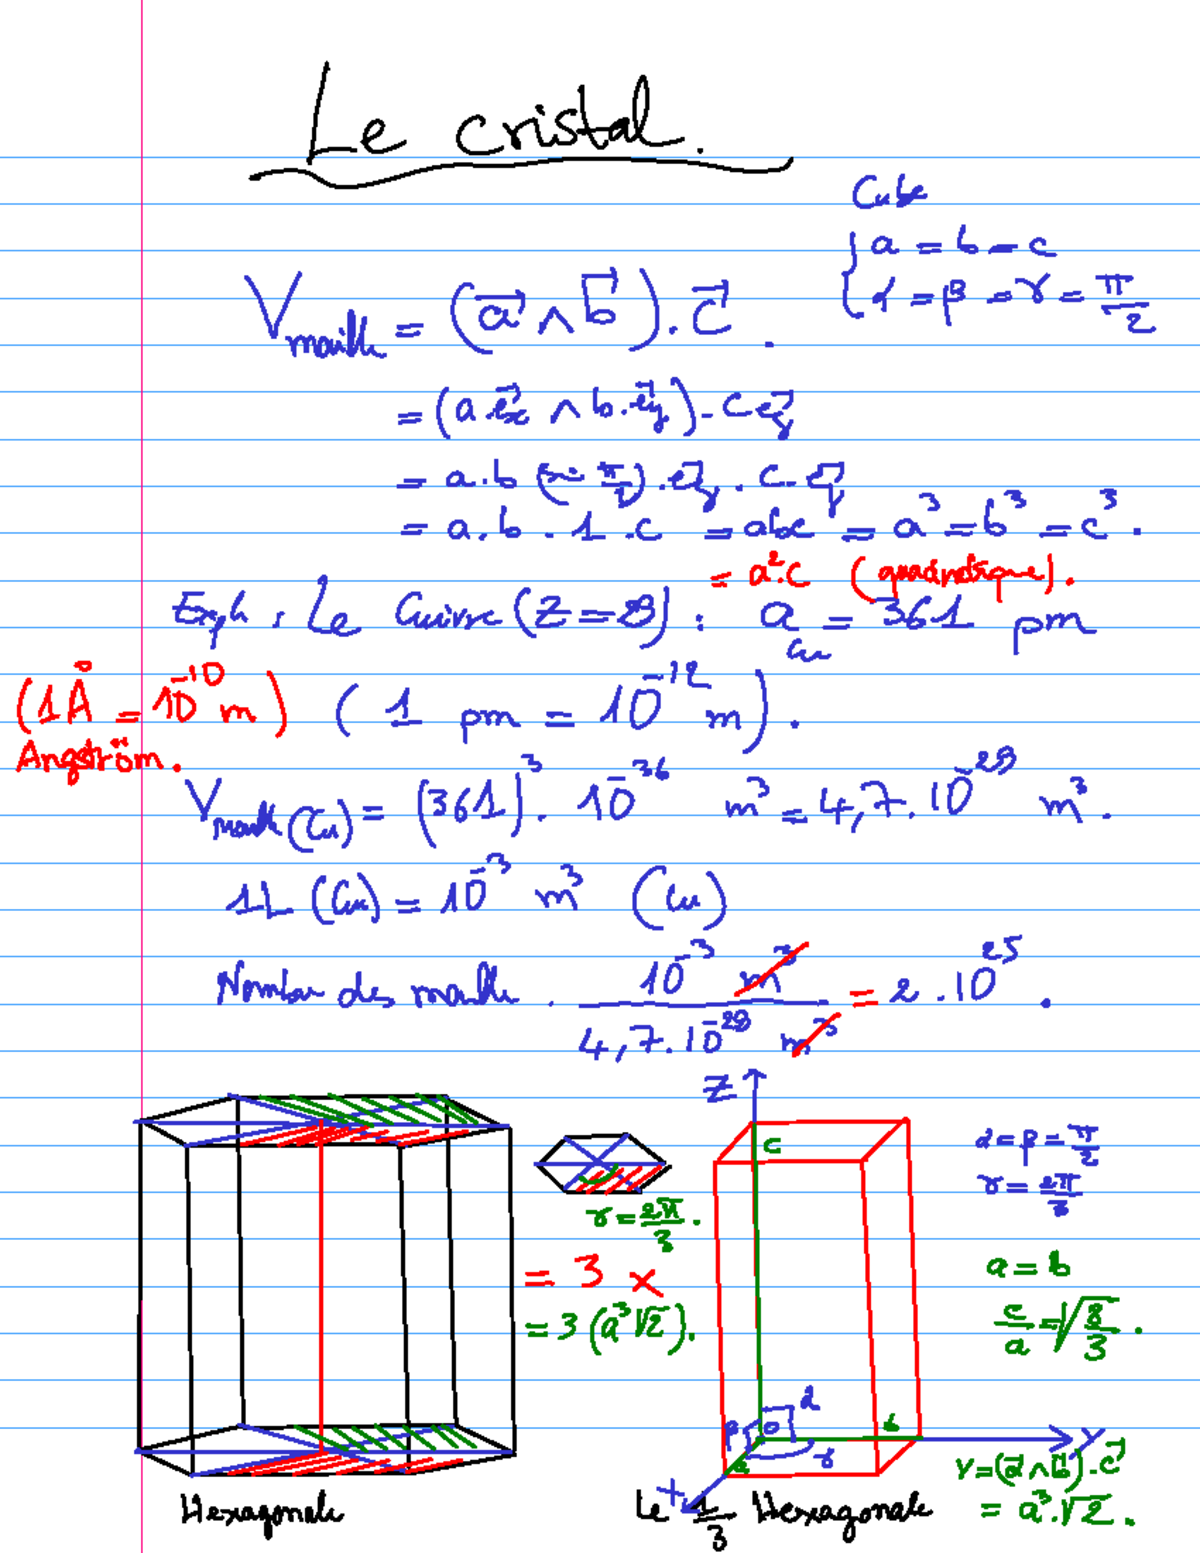 Le cristal.
Cube
a = b = c
α = β = γ = π/2
V maille = (a⃗ ∧ b⃗). c⃗.
= (a.e⃗x ∧ b.e⃗y). c e⃗z
= a.b (sin π/2).e⃗z . c.e⃗z
= a.b.1.c = abc = a³ = b³ = c³.
= a².c (quadratique).
Expl : Le Cuivre (Z=29) : a Cu = 361 pm
(1Å = 10⁻¹⁰ m) ( 1 pm = 10⁻¹² m).
Angström.
V maille (Cu) = (361)³. 10⁻³⁶ m³ = 4,7.10⁻²⁹ m³.
1L (Cu) = 10⁻³ m³ (Cu)
Nombre des maille . 10⁻³ m³ / 4,7.10⁻²⁹ m³ = 2.10²⁵.
Z
c
α = β = π/2
γ = 2π/3
γ = 2π/3.
= 3 x
= 3 (a³√2).
a = b
c/a = √8/3.
α
β
O
b
Y
a
γ
X
V = (a⃗ ∧ b⃗).c⃗
= a³.√2.
Hexagonale
Le 1/3 Hexagonale